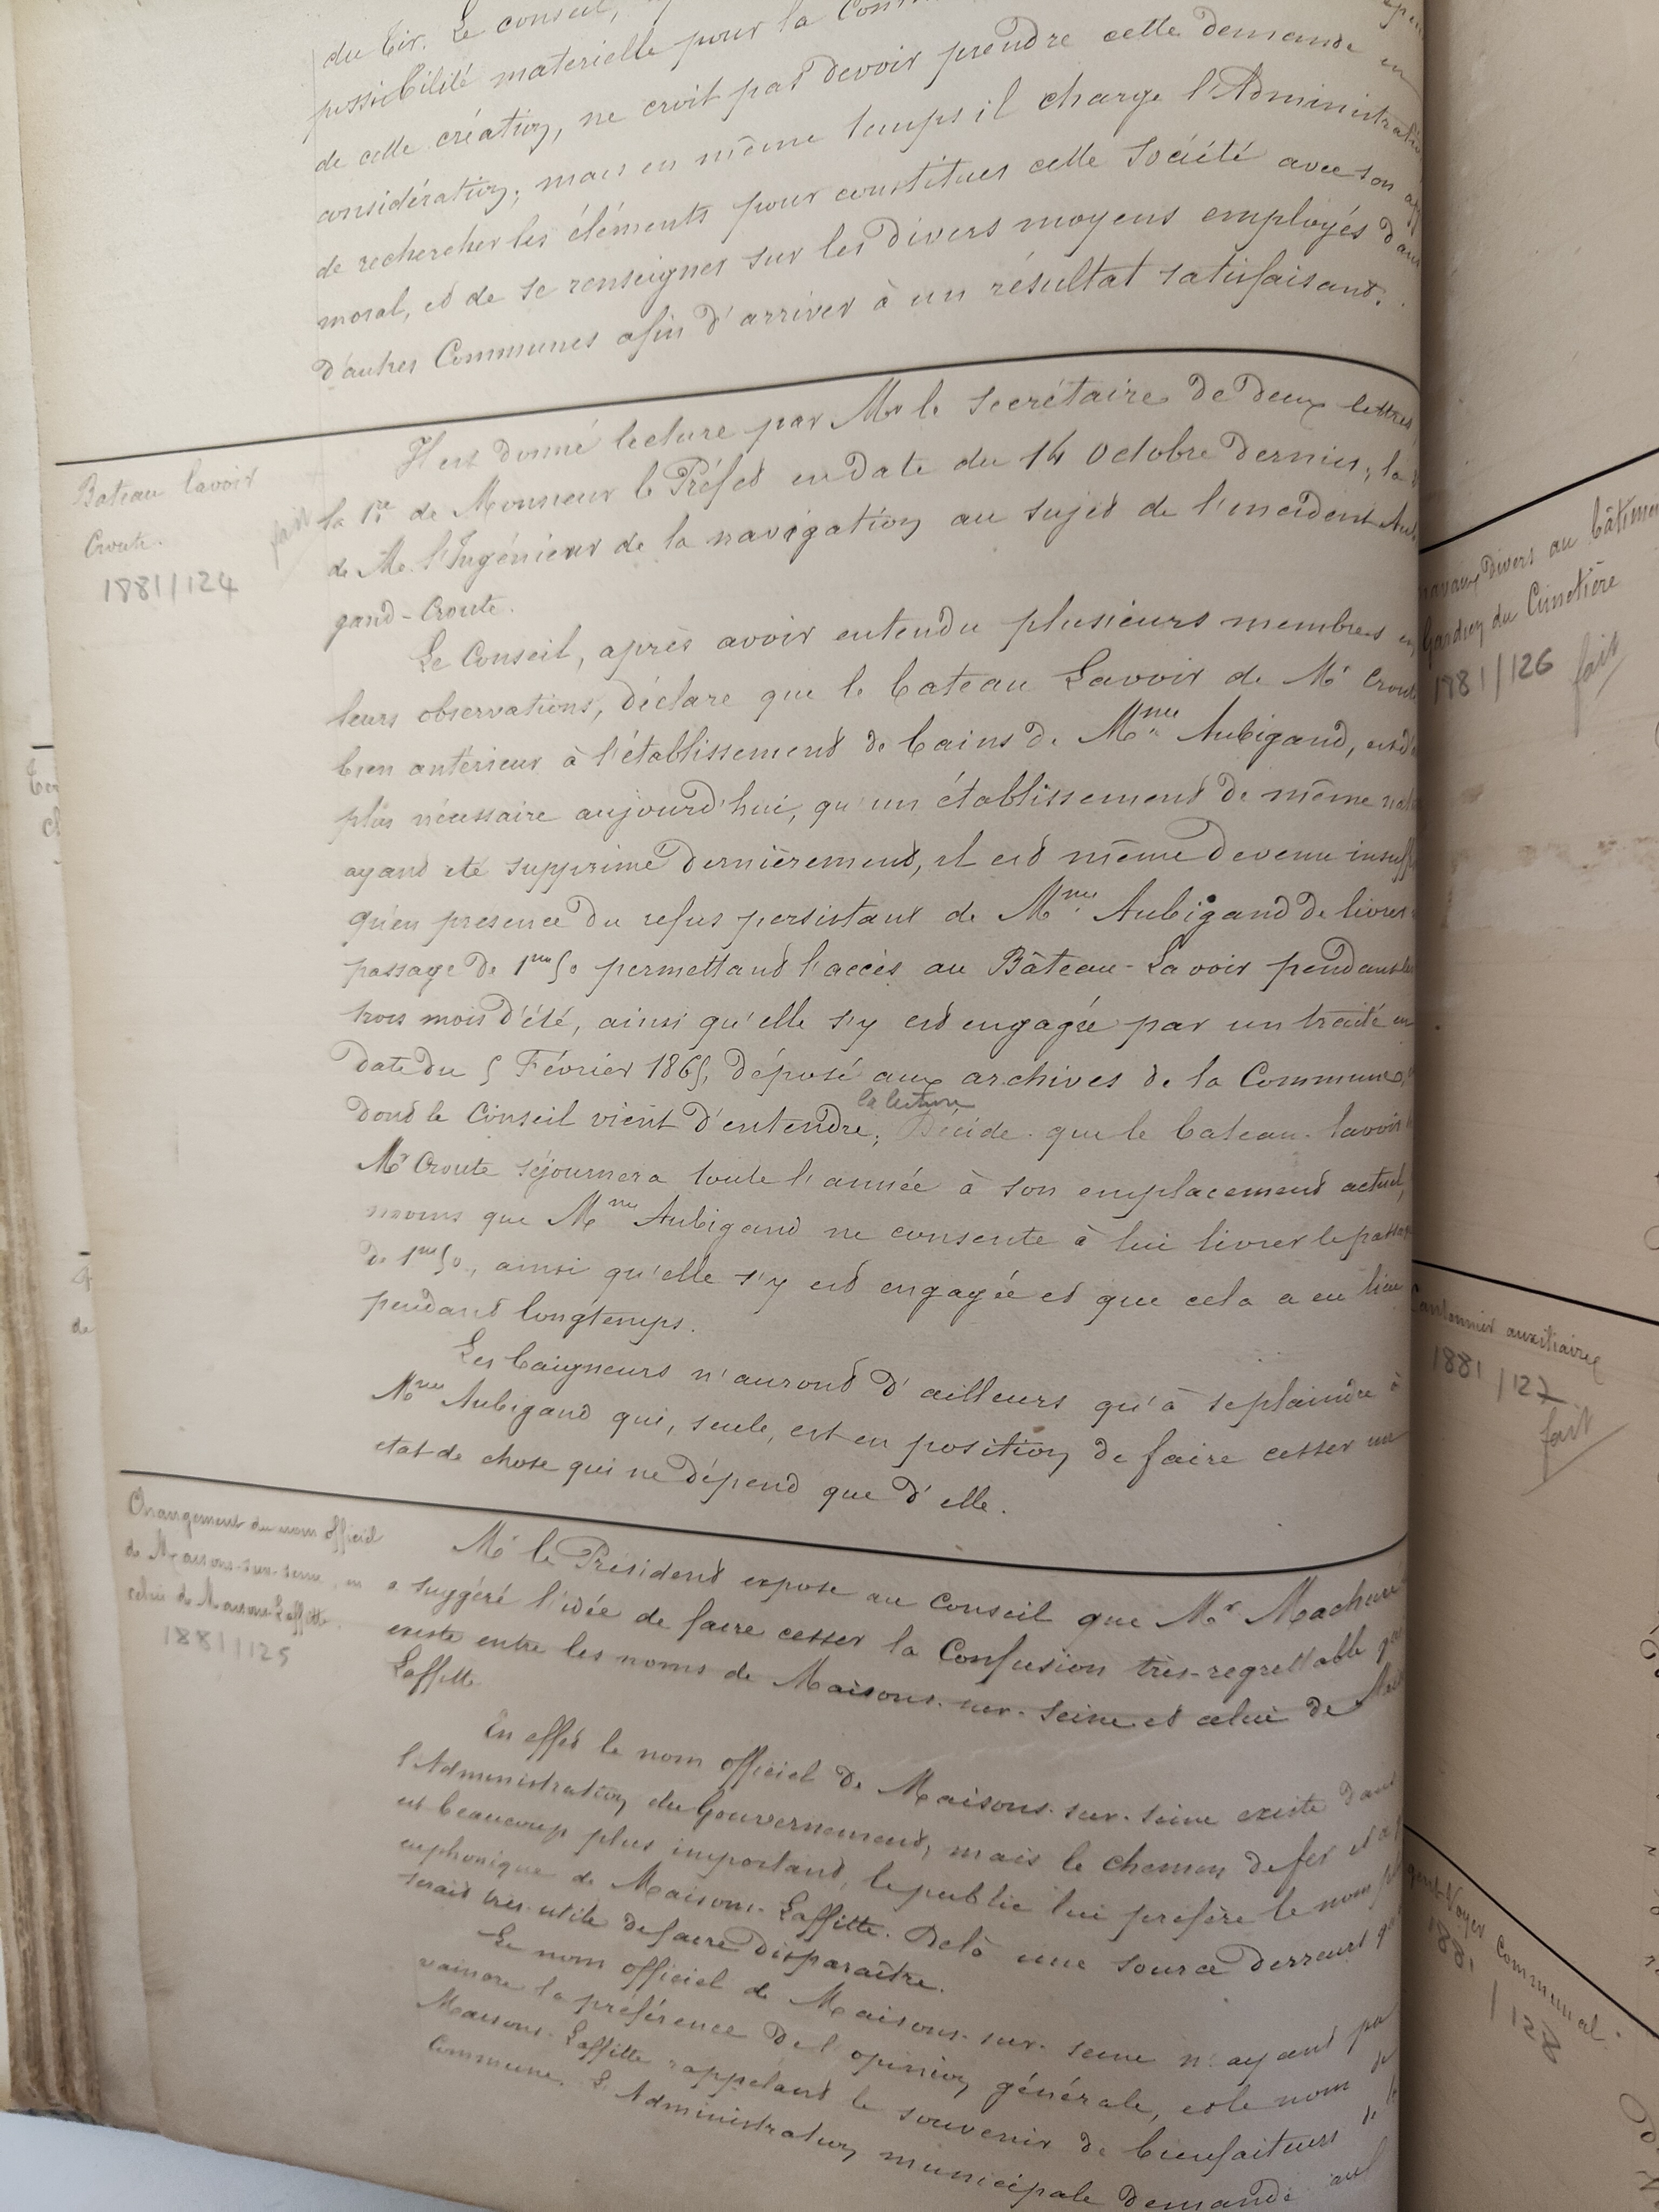 du tir. Le conseil,
possibilité materielle pour la
de cette création, ne croit pas devoir prendre cette demande en
considération; mais en même temps il charge l'Administration
de rechercher les éléments pour constituer cette Société avec son
moral, et de se renseigner sur les divers moyens employés dans
d'autres Communes afin d'arriver à un résultat satisfaisant.
Bateau lavoir
Croute.
1881/124
fait
Il est donné lecture par Mr le Secrétaire de deux lettres,
la 1re de Monsieur le Préfet en date du 14 Octobre dernier; la
de Mr l'Ingénieur de la navigation au sujet de l'incident Aubi
gand-Croute.
Le Conseil, après avoir entendu plusieurs membres en
leurs observations, déclare que le bateau Lavoir de Mr Croute
bien antérieur à l'établissement de bains de Mme Aubigand, est
plus nécessaire aujourd'hui, qu'un établissement de même
ayant été supprimé dernièrement, il est même devenu
qu'en présence du refus persistant de Mme Aubigand de livrer
passage de 1m50 permettant l'accès au Bâteau-Lavoir pendant les
trois mois d'été, ainsi qu'elle s'y est engagée par un traité en
date du 5 Février 1865, déposé aux archives de la Commune,
dont le Conseil vient d'entendre la lecture, Décide que le bateau-lavoir
Mr Croute séjournera toute l'année à son emplacement actuel,
moins que Mme Aubigand ne consente à lui livrer le passage
de 1m50, ainsi qu'elle s'y est engagée et que cela a eu lieu
pendant longtemps.
Les baigneurs n'auront d'ailleurs qu'à se plaindre à
Mme Aubigand qui, seule, est en position de faire cesser un
etat de chose qui ne dépend que d'elle.
Changement du nom officiel
de Maisons-sur-Seine, en
celui de Maisons-Laffitte.
1881/125
Mr le Président expose au Conseil que Mr
a suggéré l'idée de faire cesser la Confusion très-regrettable qui
existe entre les noms de Maisons-sur-Seine et celui de
Laffitte
En effet le nom officiel de Maisons-sur-Seine existe dans
l'Administration du Gouvernement, mais le chemin de fer et
est beaucoup plus important, le public lui préfère le nom
euphonique de Maisons-Laffitte. Delà une source d'erreurs
serait très utile de faire disparaître.
Le nom officiel de Maisons-sur-Seine n'ayant pu
vaincre la préférence de l'opinion générale, et le nom de
Maisons-Laffitte rappelant le souvenir de bienfaiteurs de la
Commune, L'Administration municipale demande
travaux divers au bâtiment
Gardien du Cimetière
1881/126
fait
Cantonnier auxiliaire
1881/127
fait
Agent-Voyer Communal.
1881/128